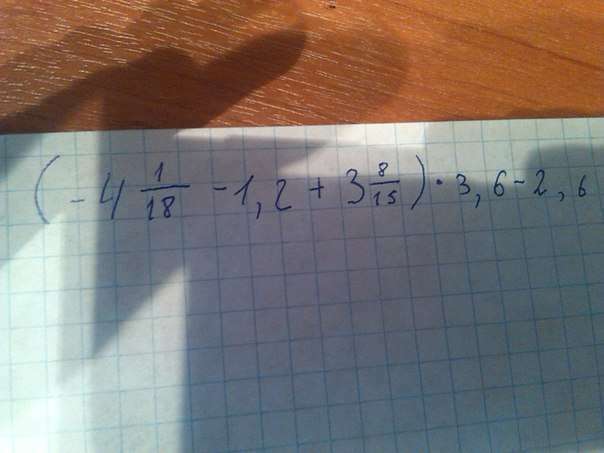 (-4 1/18 -1,2 + 3 8/15) · 3,6 - 2,6